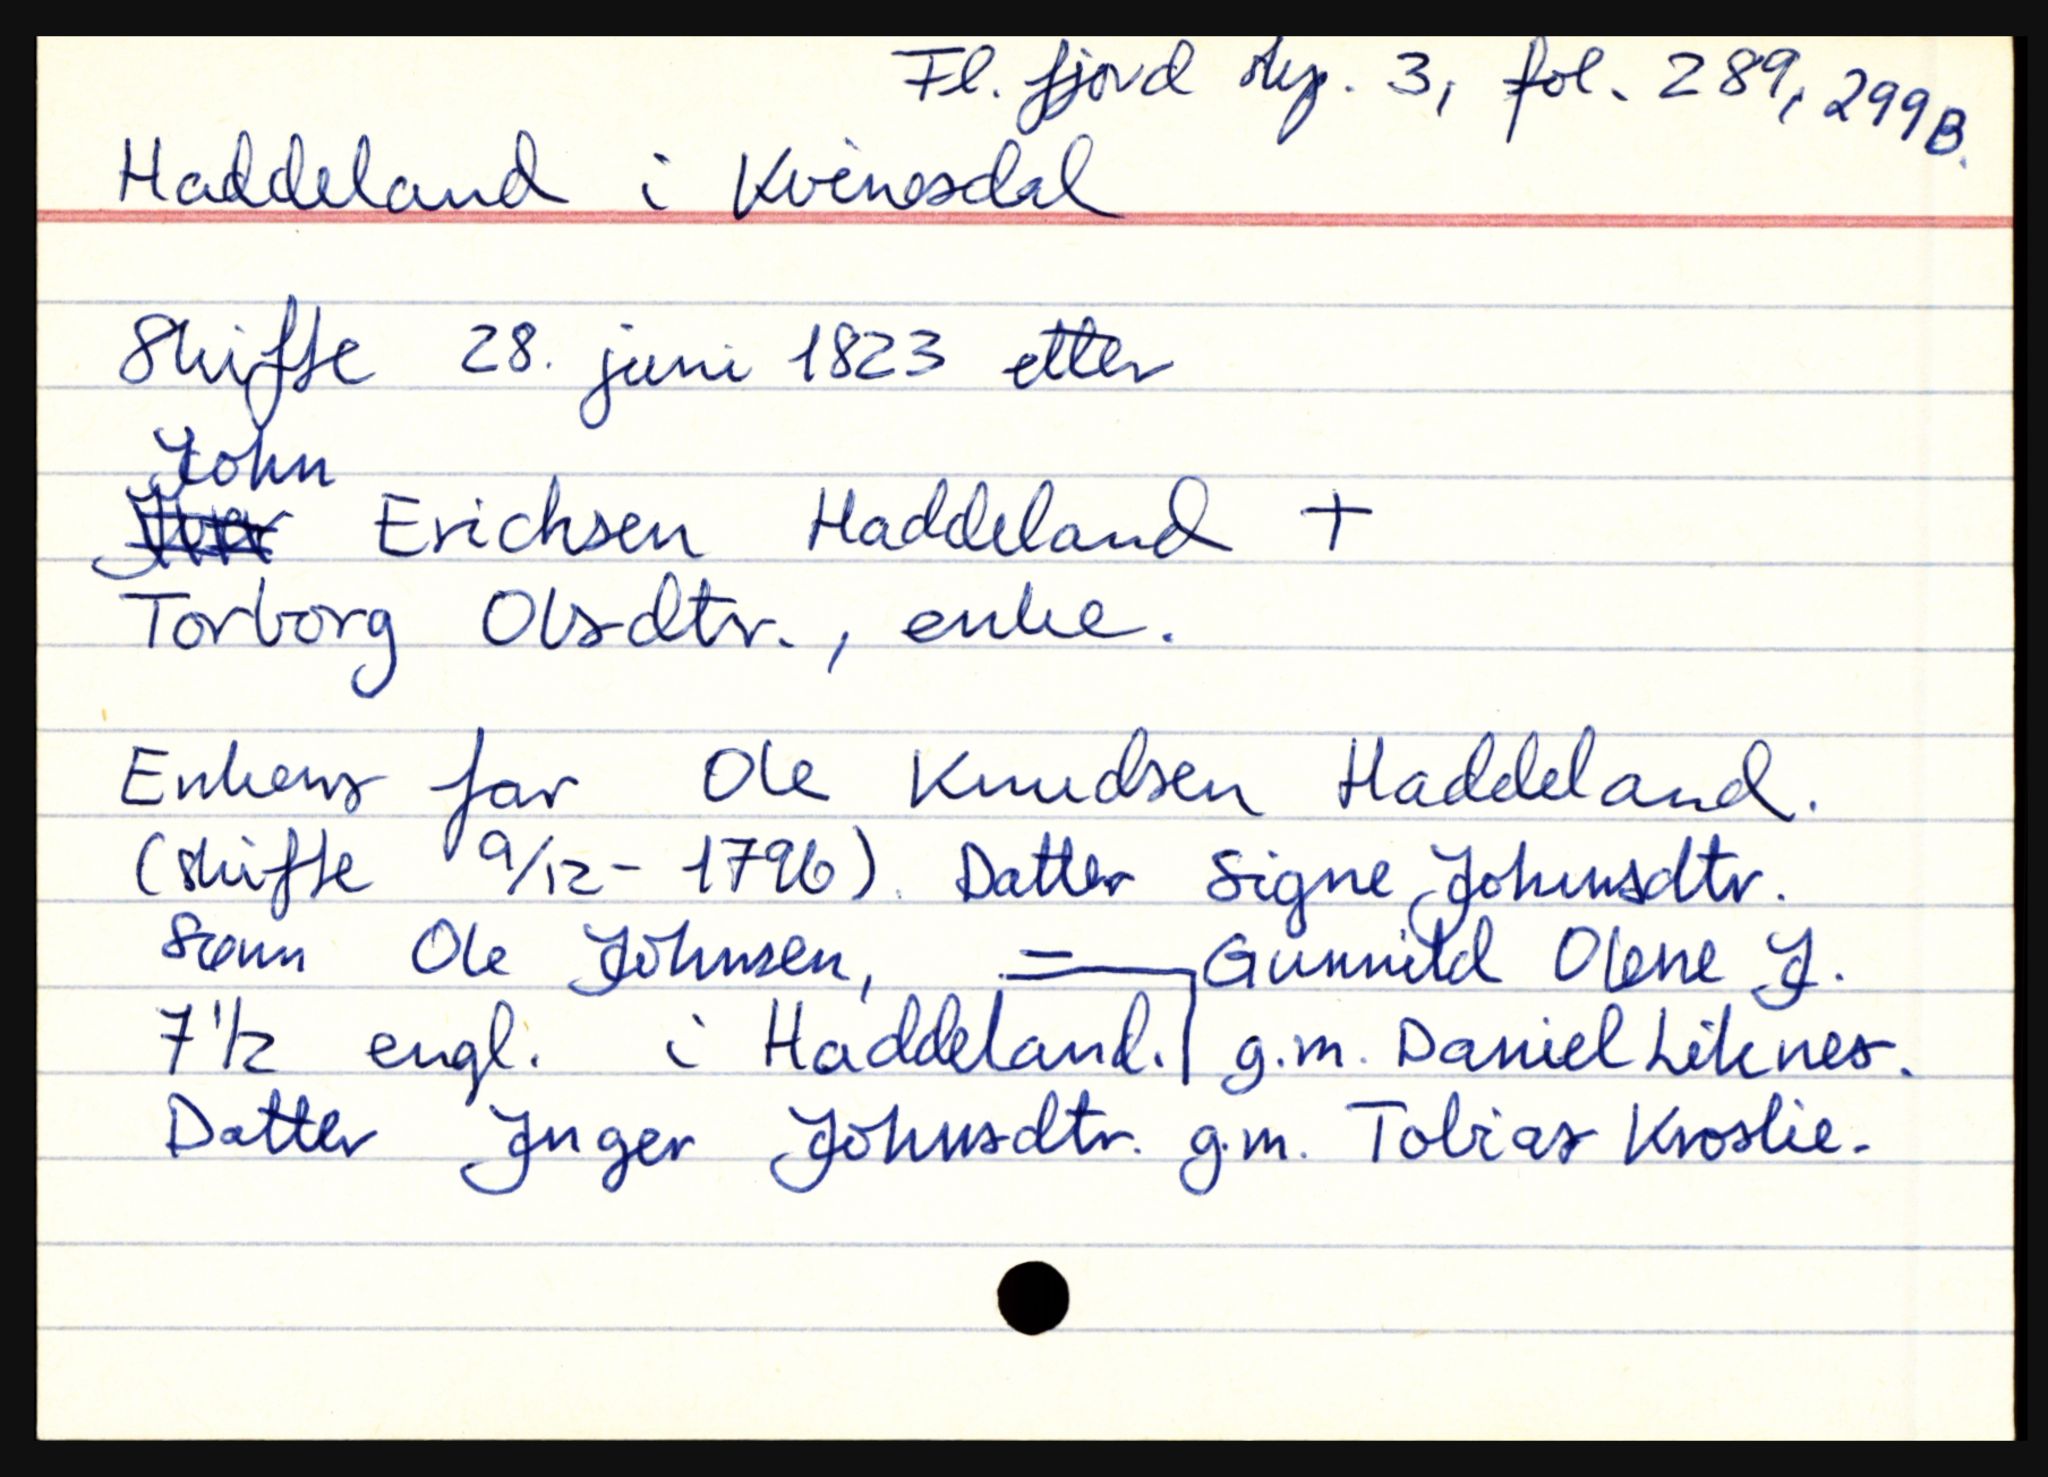 Fl. fjord skp. 3, fol. 289, 299B.
Haddeland i Kvinesdal
Skifte 28. juni 1823 etter
John
Erichsen Haddeland +
Torborg Olsdtr., enke.
Enkens far Ole Knudsen Haddeland.
(skifte 9/12 - 1796). Datter Signe Johnsdtr.
Sønn Ole Johnsen, = Gunnild Olene J.
7 1/2 engl. i Haddeland. g.m. Daniel Liknes.
Datter Inger Johnsdtr. g.m. Tobias Kroslie.